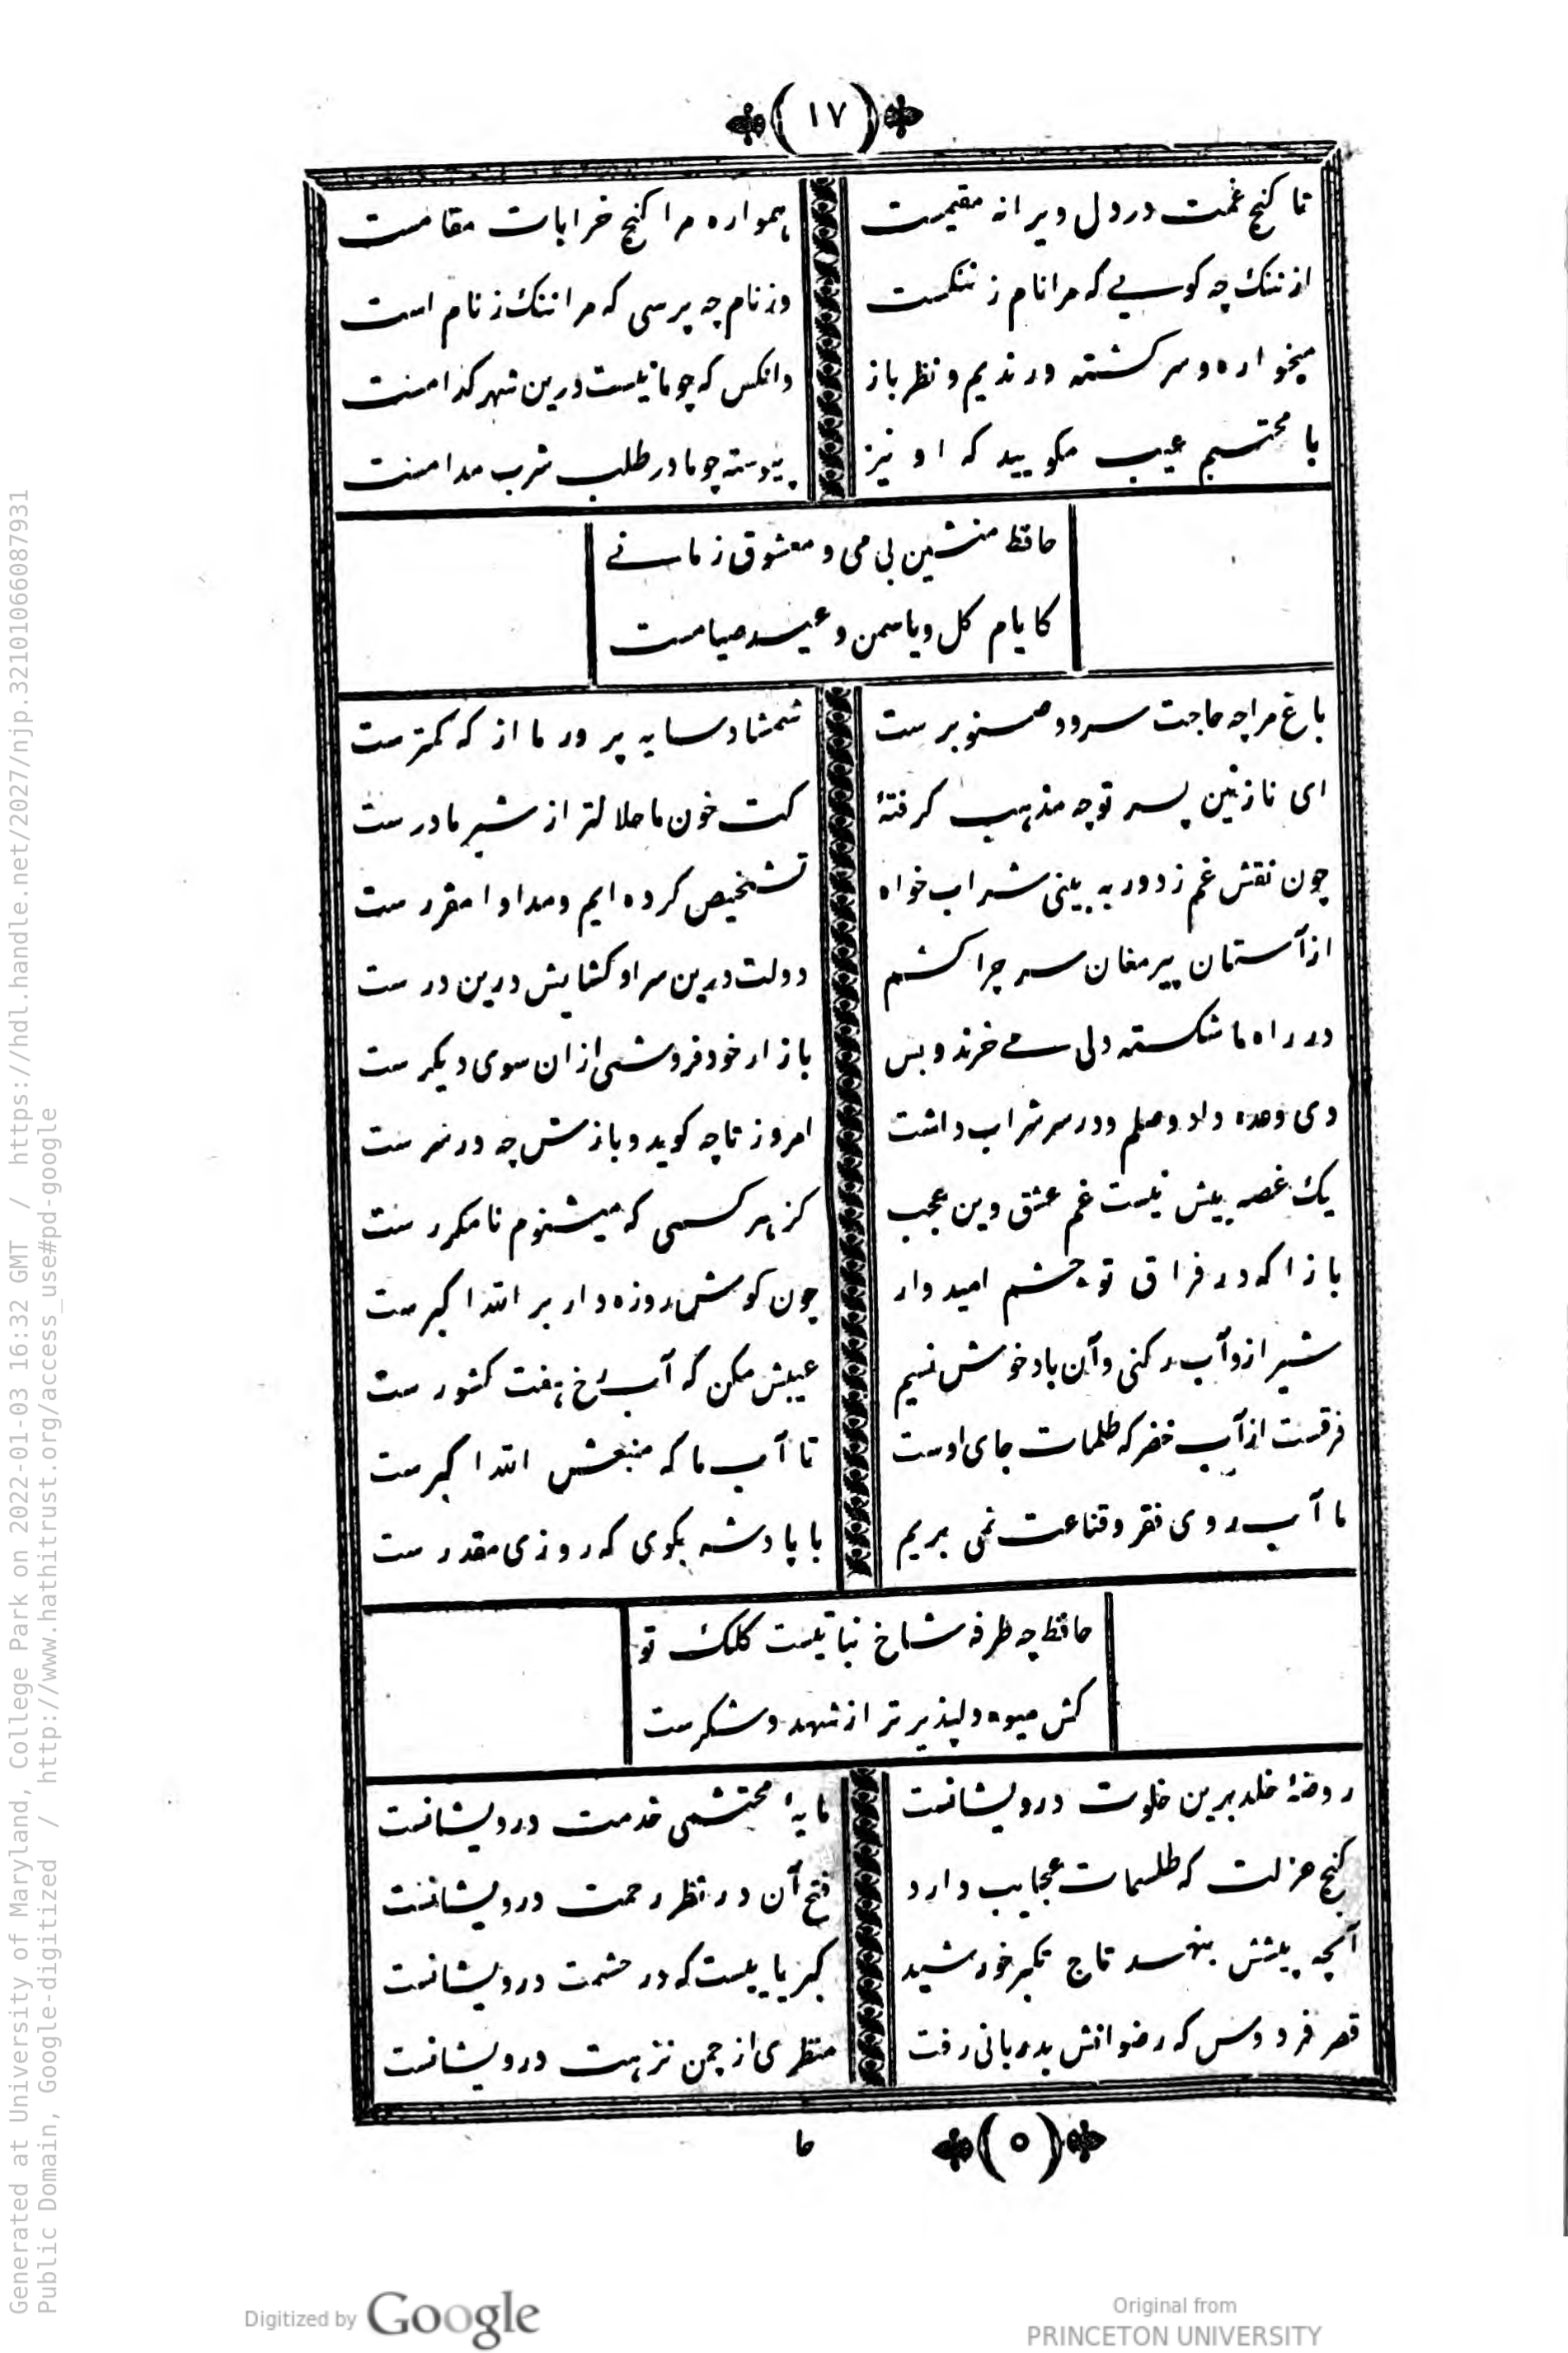 (١٧)
تا کنج غمت در دل ویرانه مقیمست
همواره مرا کنج خرابات مقامست
از ننک چه کویی که مرا نام ز ننکست
وز نام چه پرسی که مرا ننک ز نام است
میخواره و سر کشته و رندیم و نظر باز
وانکس که چو ما نیست درین شهر کدامست
با محتسبم عیب مکویید که او نیز
پیوسته چو ما در طلب شرب مدامست
حافظ منشین بی می و معشوق زمانی
کایام کل و یاسمن و عید صیامست
باغ مرا چه حاجت سرو و صنوبرست
شمشاد سایه پرور ما از که کمترست
ای نازنین پسر تو چه مذهب کرفتهٔ
کت خون ما حلالتر از شیر مادرست
چون نقش غم ز دور به بینی شراب خواه
تشخیص کرده ایم و مداوا مقررست
از آستان پیر مغان سر چرا کشم
دولت درین سرا و کشایش درین درست
در راه ما شکسته دلی می خرند و بس
بازار خودفروشی از ان سوی دیکرست
دی وعده داد وصلم و در سر شراب داشت
امروز تا چه کوید و بازش چه در سرست
یک غصه بیش نیست غم عشق وین عجب
کز هر کسی که میشنوم نامکررست
بازا که در فراق تو چشم امیدوار
چون کوش روزه دار بر الله اکبرست
شیراز و آب رکنی و آن باد خوش نسیم
عیبش مکن که آب رخ هفت کشورست
فرقست از آب خضر که ظلمات جای اوست
تا آب ما که منبعش الله اکبرست
ما آب روی فقر و قناعت نمی بریم
با پادشه بکوی که روزی مقدرست
حافظ چه طرفه شاخ نباتیست کلک تو
کش میوه دلپذیرتر از شهد و شکرست
روضهٔ خلد برین خلوت درویشانست
مایهٔ محتشمی خدمت درویشانست
کنج عزلت که طلسمات عجایب دارد
فتح آن در نظر رحمت درویشانست
آنچه پیشش بنهد تاج تکبر خورشید
کبریاییست که در حشمت درویشانست
قصر فردوس که رضوانش بدربانی رفت
منظری از چمن نزهت درویشانست
(٥)
حا
Generated at University of Maryland, College Park on 2022-01-03 16:32 GMT / https://hdl.handle.net/2027/njp.32101066087931
Public Domain, Google-digitized / http://www.hathitrust.org/access_use#pd-google
Digitized by Google
Original from
PRINCETON UNIVERSITY